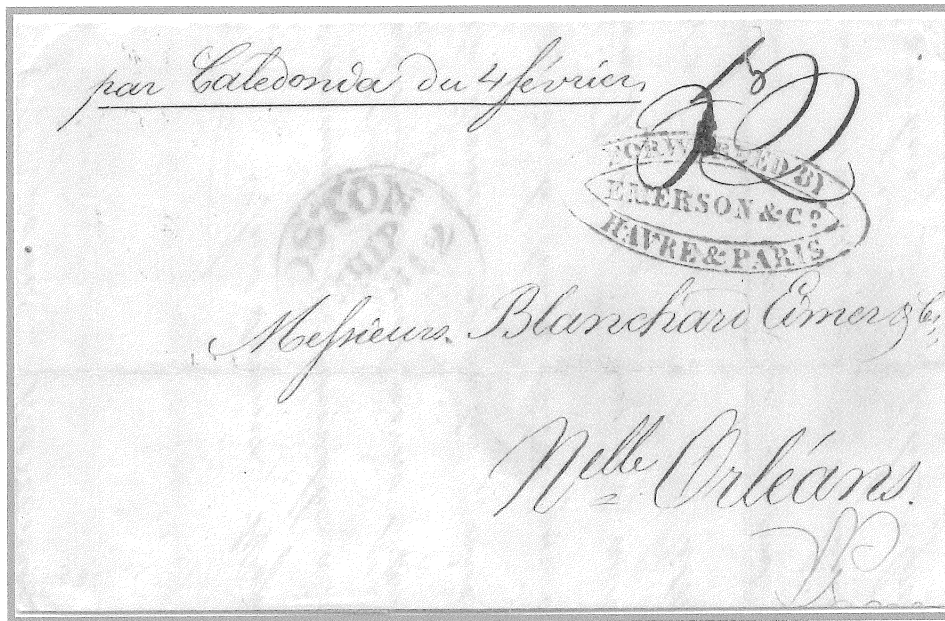 par Caledonia du 4 février.
FORWARDED BY
EMERSON & Cº
HAVRE & PARIS
STON
SHIP
Messieurs Blanchard Eimer & Cº,
Nelle Orléans.